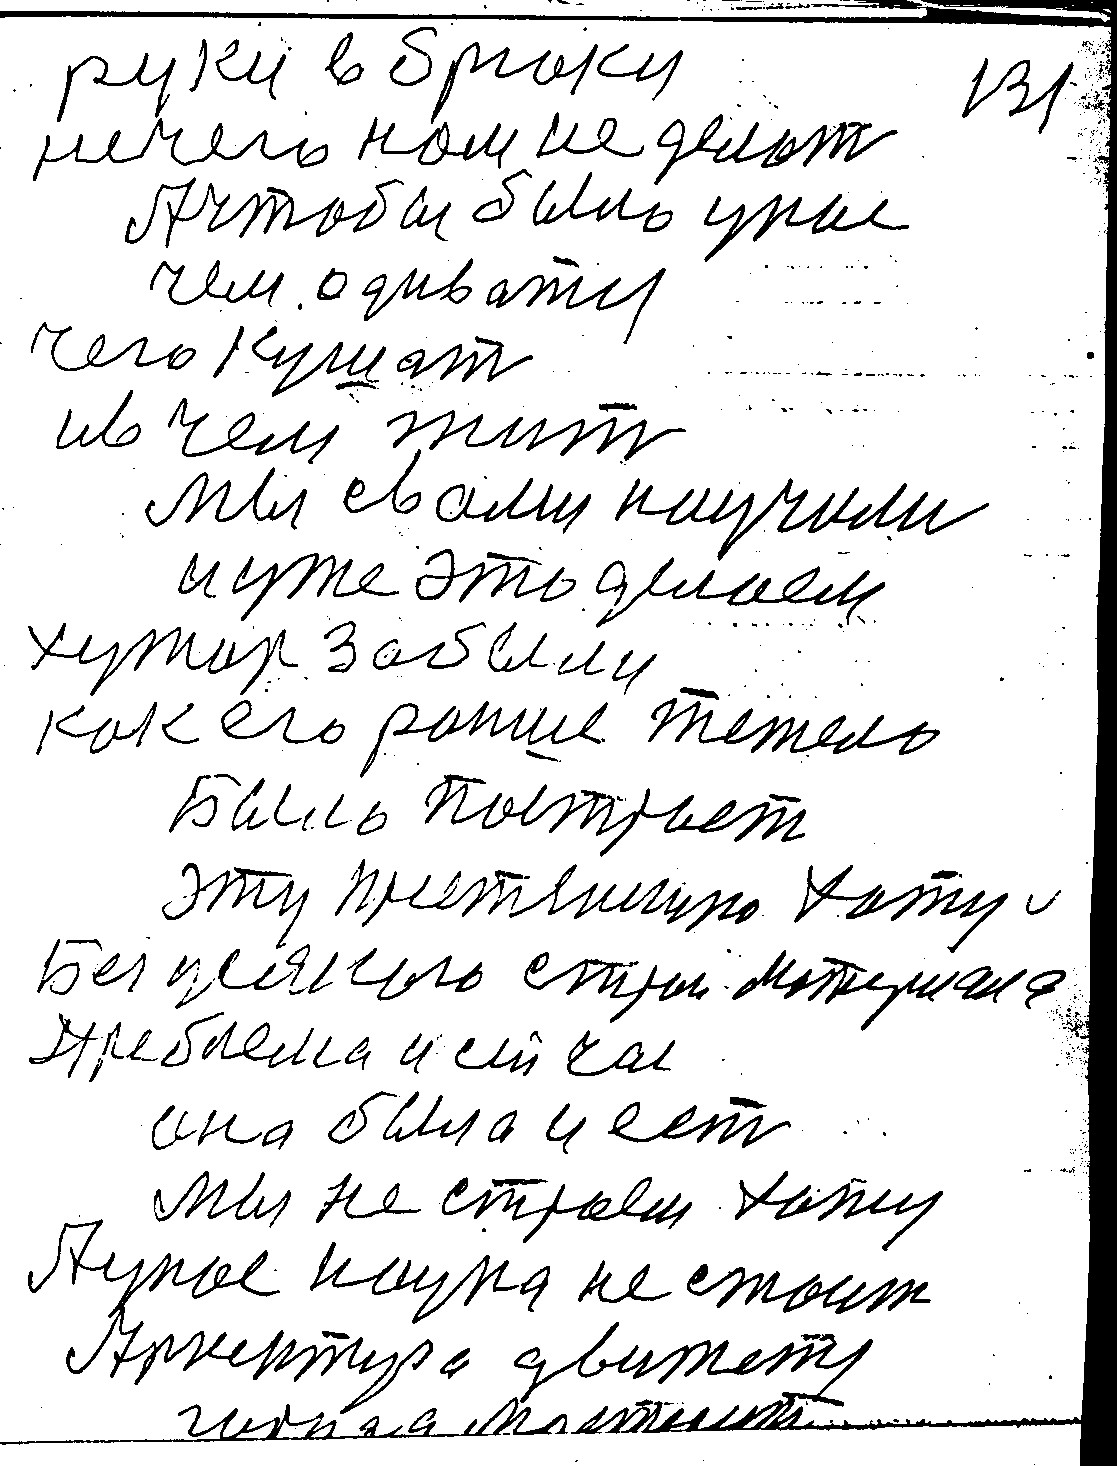 руки в брюки 131
нечего нам не делат
А чтобы было у нас
чем одиватся
чего кушат
и в чем жит
Мы с вами научили
и уже это делаем
хутор забыли
как его ранше тежело
Было построет
эту крестянскую хату
Без усякого строй материала
Проблема и сейчас
она была и ест
Мы не строем хату
А у нас наука не стоит
Архектура движется